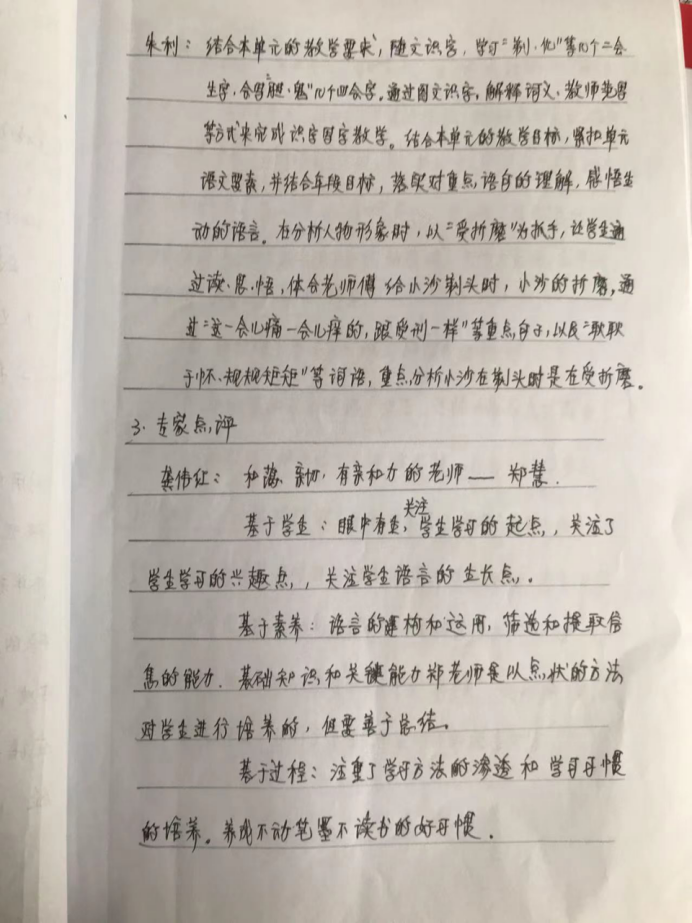 朱利：结合本单元的教学要求，随文识字，学习“剃、仇”等10个二会
生字，会写“胆、鬼”几个四会字。通过图文识字，解释词文、教师范写
等方式来完成识字写字教学。结合本单元的教学目标，紧扣单元
语文要素，并结合年段目标，落实对重点语句的理解，感悟生
动的语言。在分析人物形象时，以“受折磨”为抓手，让学生通
过读、思、悟，体会老师傅给小沙剃头时，小沙的折磨，通
过“这一会儿痛一会儿痒的，跟受刑一样”等重点句子，以及“耿耿
于怀、规规矩矩”等词语，重点分析小沙在剃头时是在受折磨。
3. 专家点评
龚伟红：和蔼、亲切，有亲和力的老师——郑慧.
基于学生：眼中有生，关注学生学习的起点，关注了
学生学习的兴趣点，关注学生语言的生长点。
基于素养：语言的建构和运用，筛选和提取信
息的能力. 基础知识和关键能力郑老师是以点状的方法
对学生进行培养的，但要善于总结。
基于过程：注重了学习方法的渗透和学习习惯
的培养。养成不动笔墨不读书的好习惯.